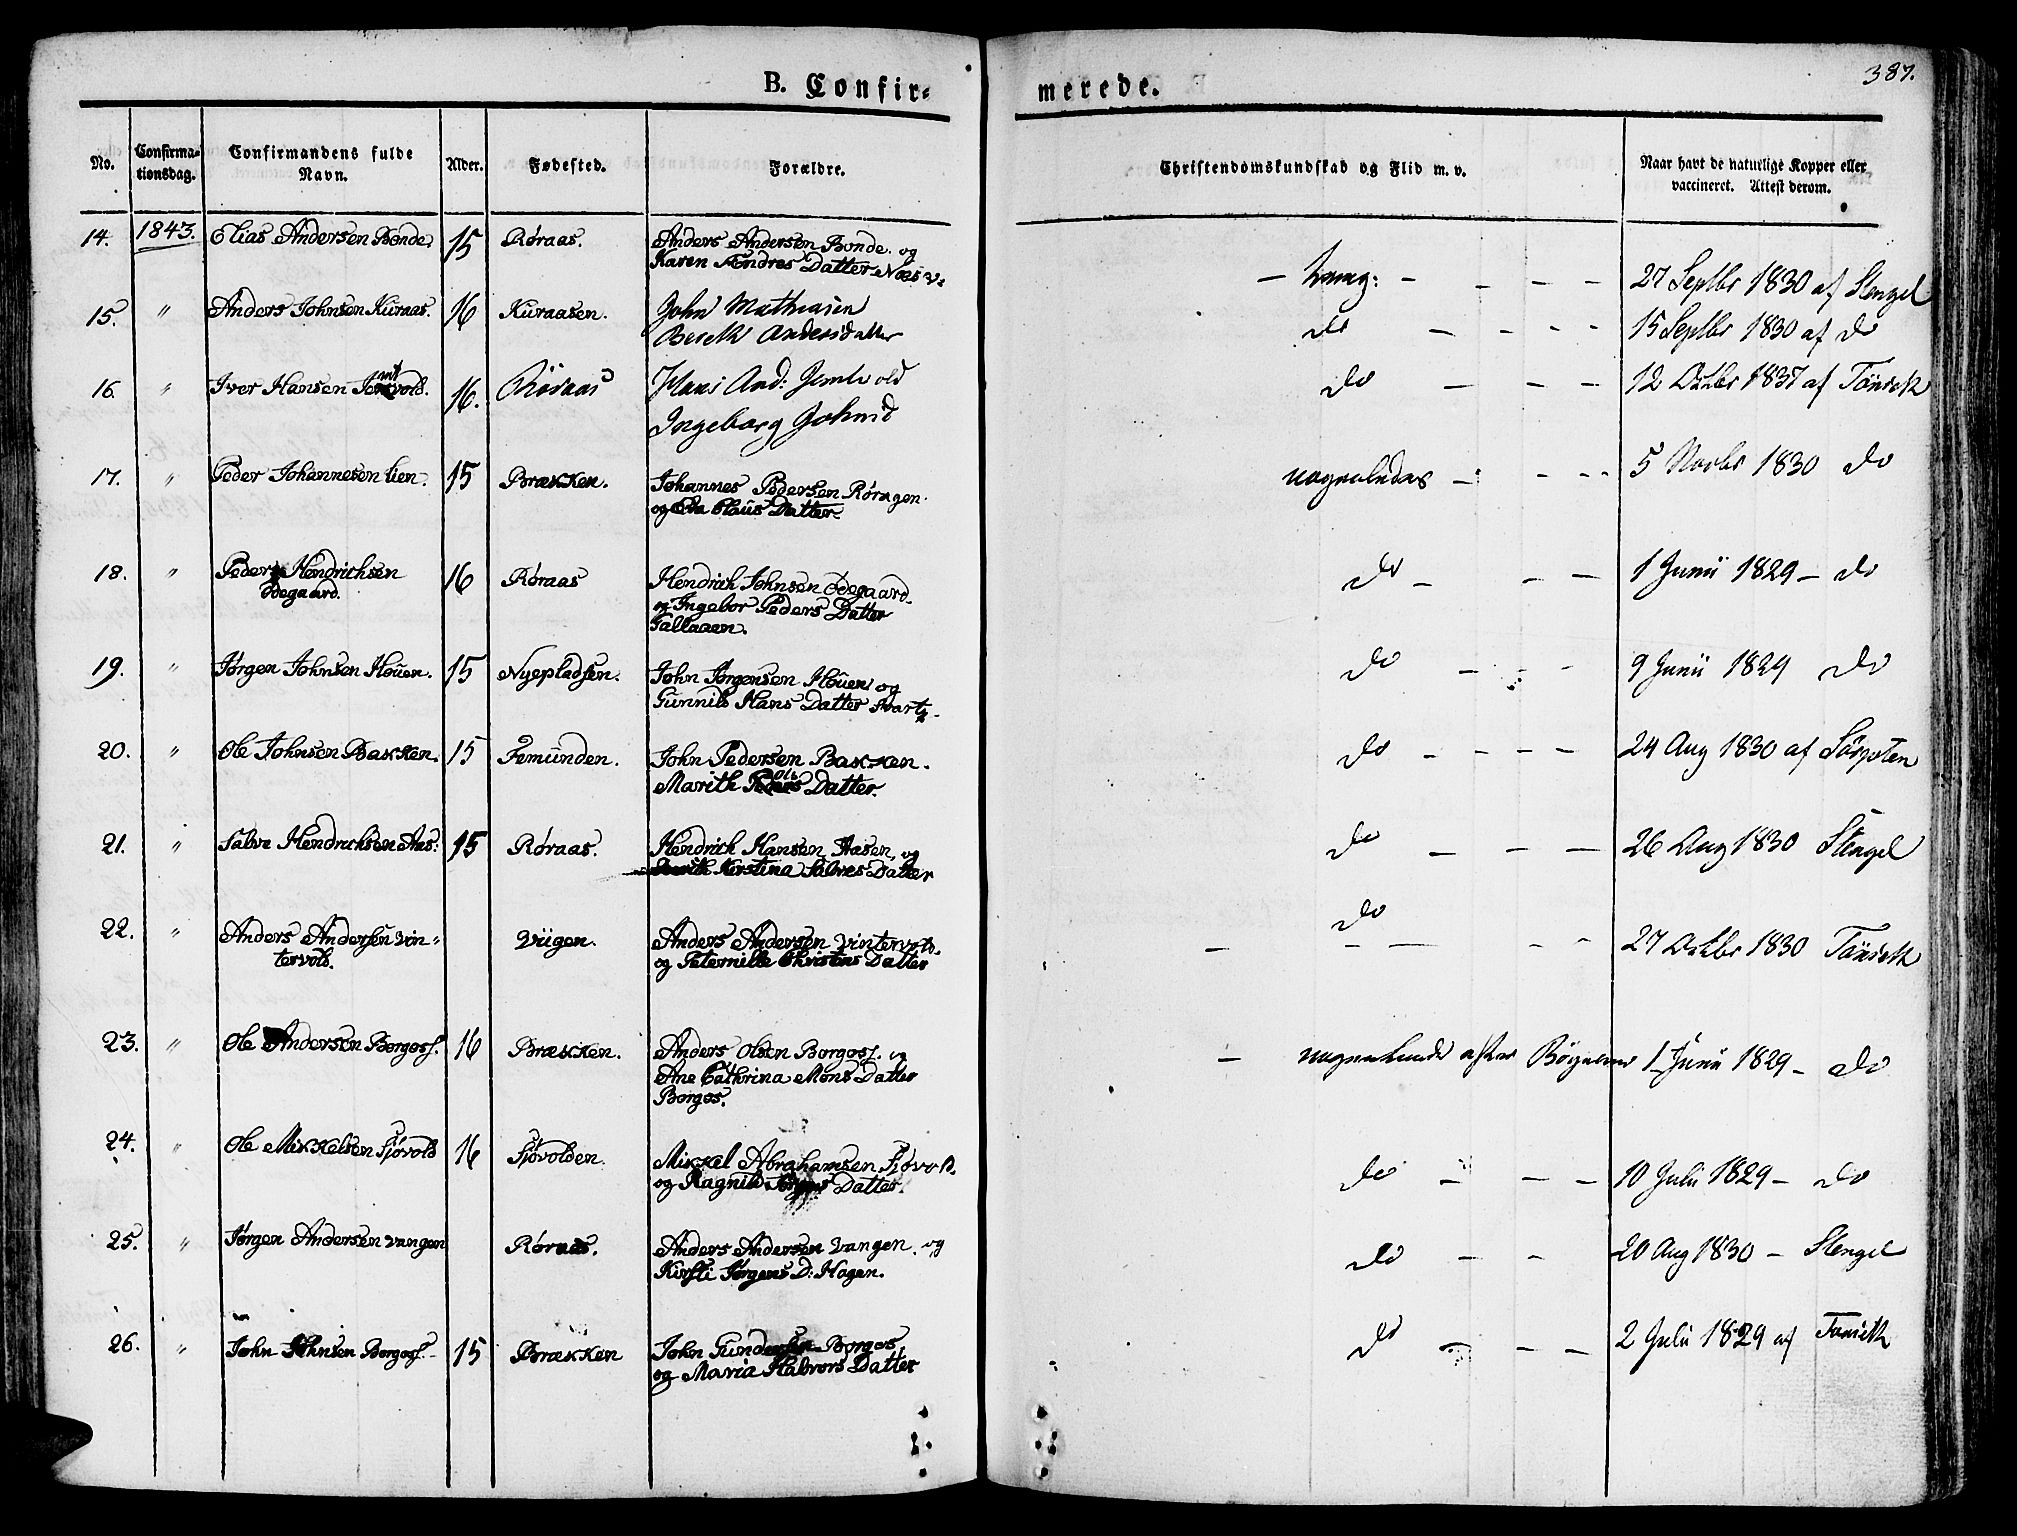 B. Confir-
merede.
387.
No.
Confirma-
tionsdag.
Confirmandens fulde
Navn.
Alder.
Fødested.
Forældre.
Christendomskundskab og Flid m. v.
Naar havt de naturlige Kopper eller
vaccineret. Attest derom.
14. 1843. Elias Andersen Bonde. 15 Røraas. Anders Andersen Bonde. og 27 Septbr 1830 af Stengel
Karen Endres Datter Næs v.
15. " Anders Johnsen Kuraas. 16 Kuraasen. John Mathiasen do — — — — 15 Septbr 1830 af do
Bereth Andersdatter
16. " Iver Hansen Jemtvold. 16. Røraas Hans And: Jemtvold do — — — 12 Octbr 1837 af Tönseth
Ingeborg Johnsd
17. " Peder Johannesen Lien. 15 Brækken. Johannes Pedersen Røragen. 5 Novbr 1830 do
og Eva Claus Datter.
18. " Peder Hendrichsen 16 Røraas Hendrich Johnsen Ødegaard. do — — — 1 Junii 1829 — do
Ødegaard. og Ingebor Peders Datter
Gallaaen.
19. " Jørgen Johnsen Houen. 15 Nyepladsen. John Jørgensen Houen og do — — — 9 Junii 1829 do
Gunnild Hans Datter Svart
20. " Ole Johnsen Bakken. 15 Femunden. John Pedersen Bakken. do — — — — 24 Aug 1830 af
Marith Ols Datter.
21. " Salve Hendrichsen Aas: 15 Røraas. Hendrich Hansen Aasen, og do — — — 26 Aug 1830 Stengel
Kerstina Salves Datter
22. " Anders Andersen Vin- Viigen. Anders Andersen Vintervold. do — — 27 Octbr 1830 Tönseth
tervold. og Peternille Christens Datter
23. " Ole Andersen Borgos. 16 Brækken. Anders Olsen Borgos. og — 1 Junii 1829 — do
Ane Cathrina Mons Datter
Borgos.
24. " Ole Mikkelsen Sjøvold 16 Sjøvolden. Mikkel Abrahamsen Sjøvold. do — — — 10 Julii 1829 — do
og Ragnild Datter
25. " Jørgen Andersen Vangen Røraas. Anders Andersen Vangen. og do — — 20 Aug 1830 — Stengel
Kirsti Jørgens D: Hagen.
26. " John Johnsen Borgos. 15 Brækken John Gundersen Borgos do — — — 2 Julii 1829 af Tönseth
og Maria Halvors Datter